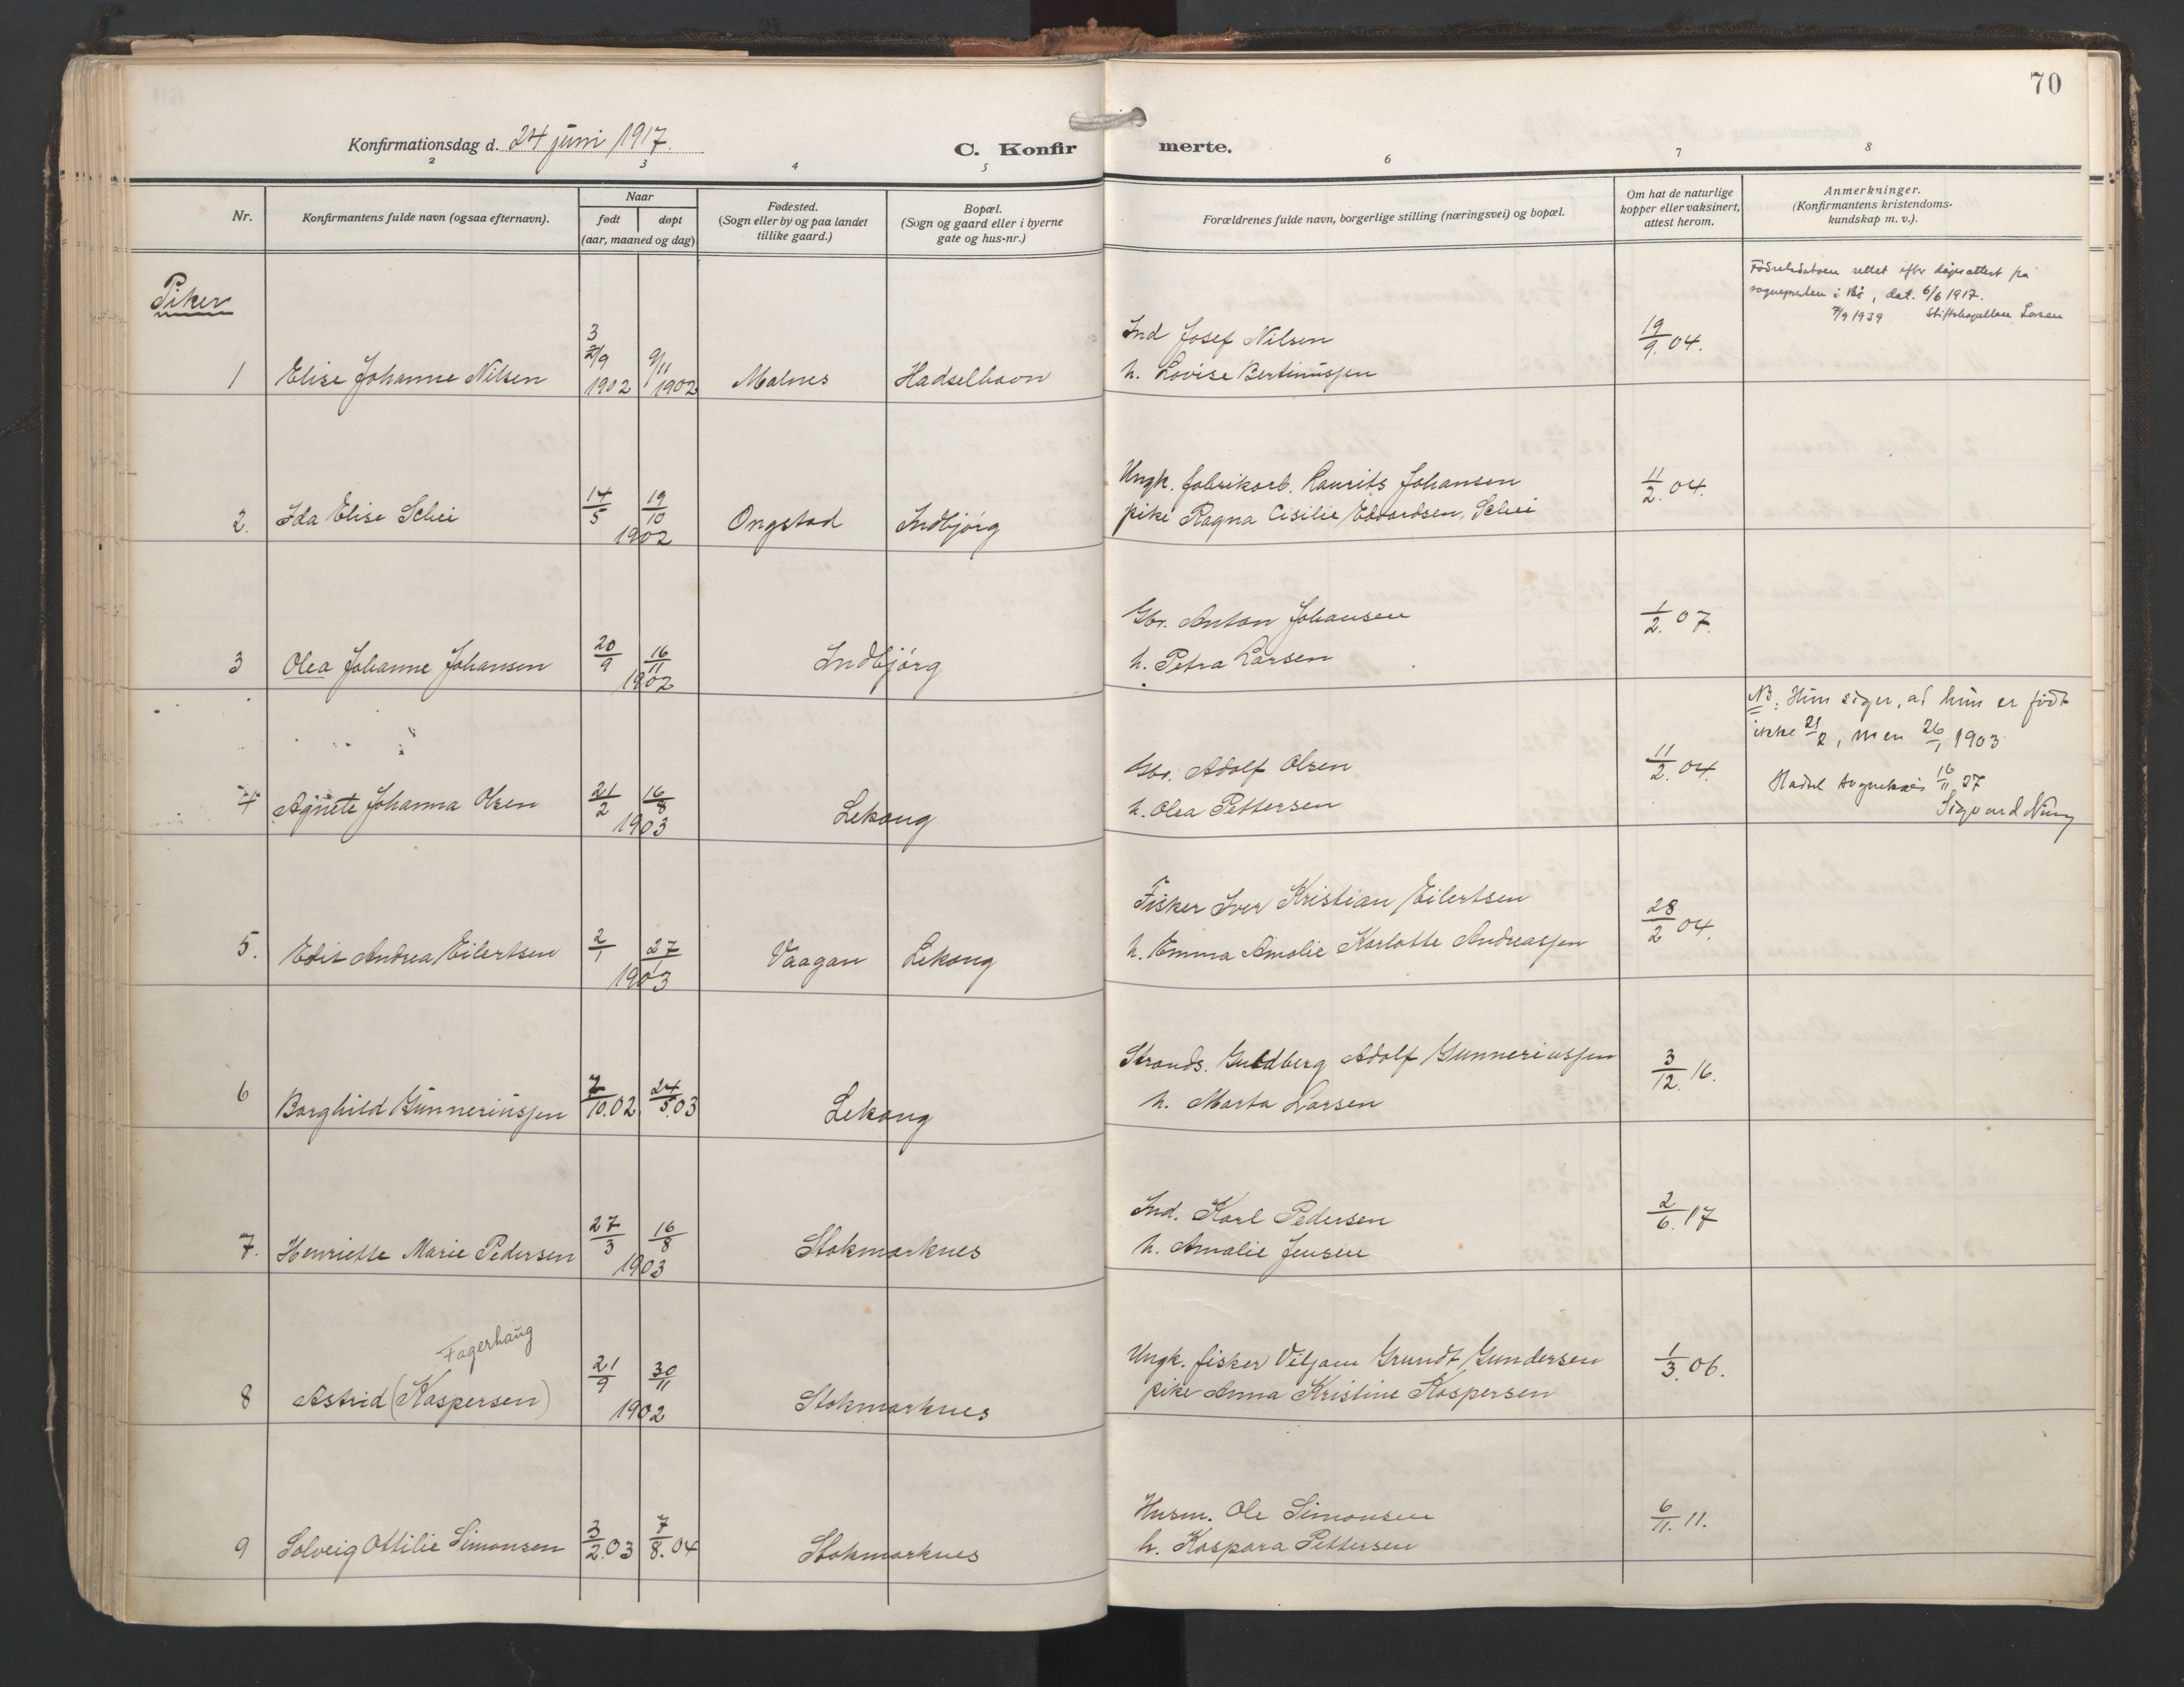 70
Konfirmationsdag d. 24 juni 1917.
C. Konfirmerte.
2 3 4 5 6 7 8
Nr.
Konfirmantens fulde navn (ogsaa efternavn).
Naar
født døpt
(aar, maaned og dag)
Fødested.
(Sogn eller by og paa landet
tillike gaard.)
Bopæl.
(Sogn og gaard eller i byerne
gate og hus-nr.)
Forældrenes fulde navn, borgerlige stilling (næringsvei) og bopæl.
Om hat de naturlige
kopper eller vaksinert,
attest herom.
Anmerkninger.
(Konfirmantens kristendoms-
kundskap m. v.).
Piker
Fødselsdatoen rettet efter dåpsattest fra
sognepresten i Bø, dat. 6/6 1917.
/9 1939 Stiftskapellan Larsen
1 Elise Johanne Nilsen 3/9 1902 9/11 1902 Malnes Hadselhavn
Ind Josef Nilsen
h. Lovise Bertinussen
19/9. 04.
2. Ida Elise Schei 14/5 19/10 1902 Ongstad Indbjörg
Ungk. fabrikarb. Laurits Johansen
pike Ragna Cisilie Edvardsen, Schei
11/2. 04.
3 Olea Johanne Johansen 20/9 16/11 1902 Indbjörg
Gbr. Anton Johansen
h. Petra Larsen
1/2. 07.
4 Agnete Johanna Olsen 21/2 16/8 1903 Lekang
Gbr. Adolf Olsen
h. Olea Pettersen
11/2. 04.
NB. Hun siger, at hun er født
ikke 21/2, men 26/1 1903
Hadsel sognekald 16/11 37
Sigvard
5. Edit Andrea Eilertsen 2/1 27/1 1903 Vaagan Lekang
Fisker Iver Kristian Eilertsen
h. Emma Amalie Karlotte Andreassen
28/2 04.
6 Borghild Gunneriussen 7/10.02 24/5.03 Lekang
Strands. Guldberg Adolf Gunneriussen
h. Marta Larsen
3/12. 16.
7. Henriette Marie Pedersen 27/3 16/8 1903 Stokmarknes
Ind. Karl Pedersen
h. Amalie Jensen
2/6. 17
Fagerhaug
8 Astrid (Kaspersen) 21/9 30/11 1902 Stokmarknes
Ungk. fisker Viljam Grundt Gundersen
pike Anna Kristine Kaspersen
1/3. 06.
9 Solveig Ottilie Simonsen 3/2.03 7/8.04 Stokmarknes
Husm. Ole Simonsen
h. Kaspara Pettersen
6/11. 11.